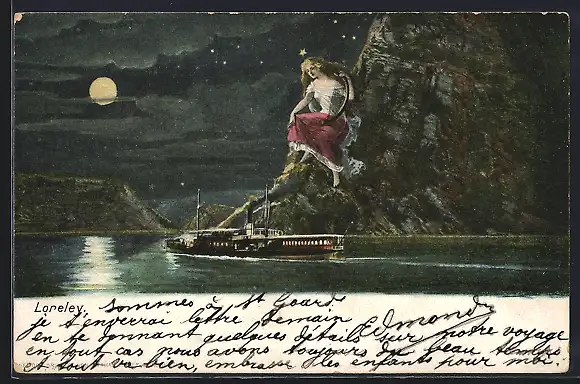 Loreley.
sommes à St Goard.
je t'enverrai lettre demain Edmond
en te donnant quelques détails sur notre voyage
en tout cas nous avons toujours du beau temps
et tout va bien, embrasse les enfants pour moi.